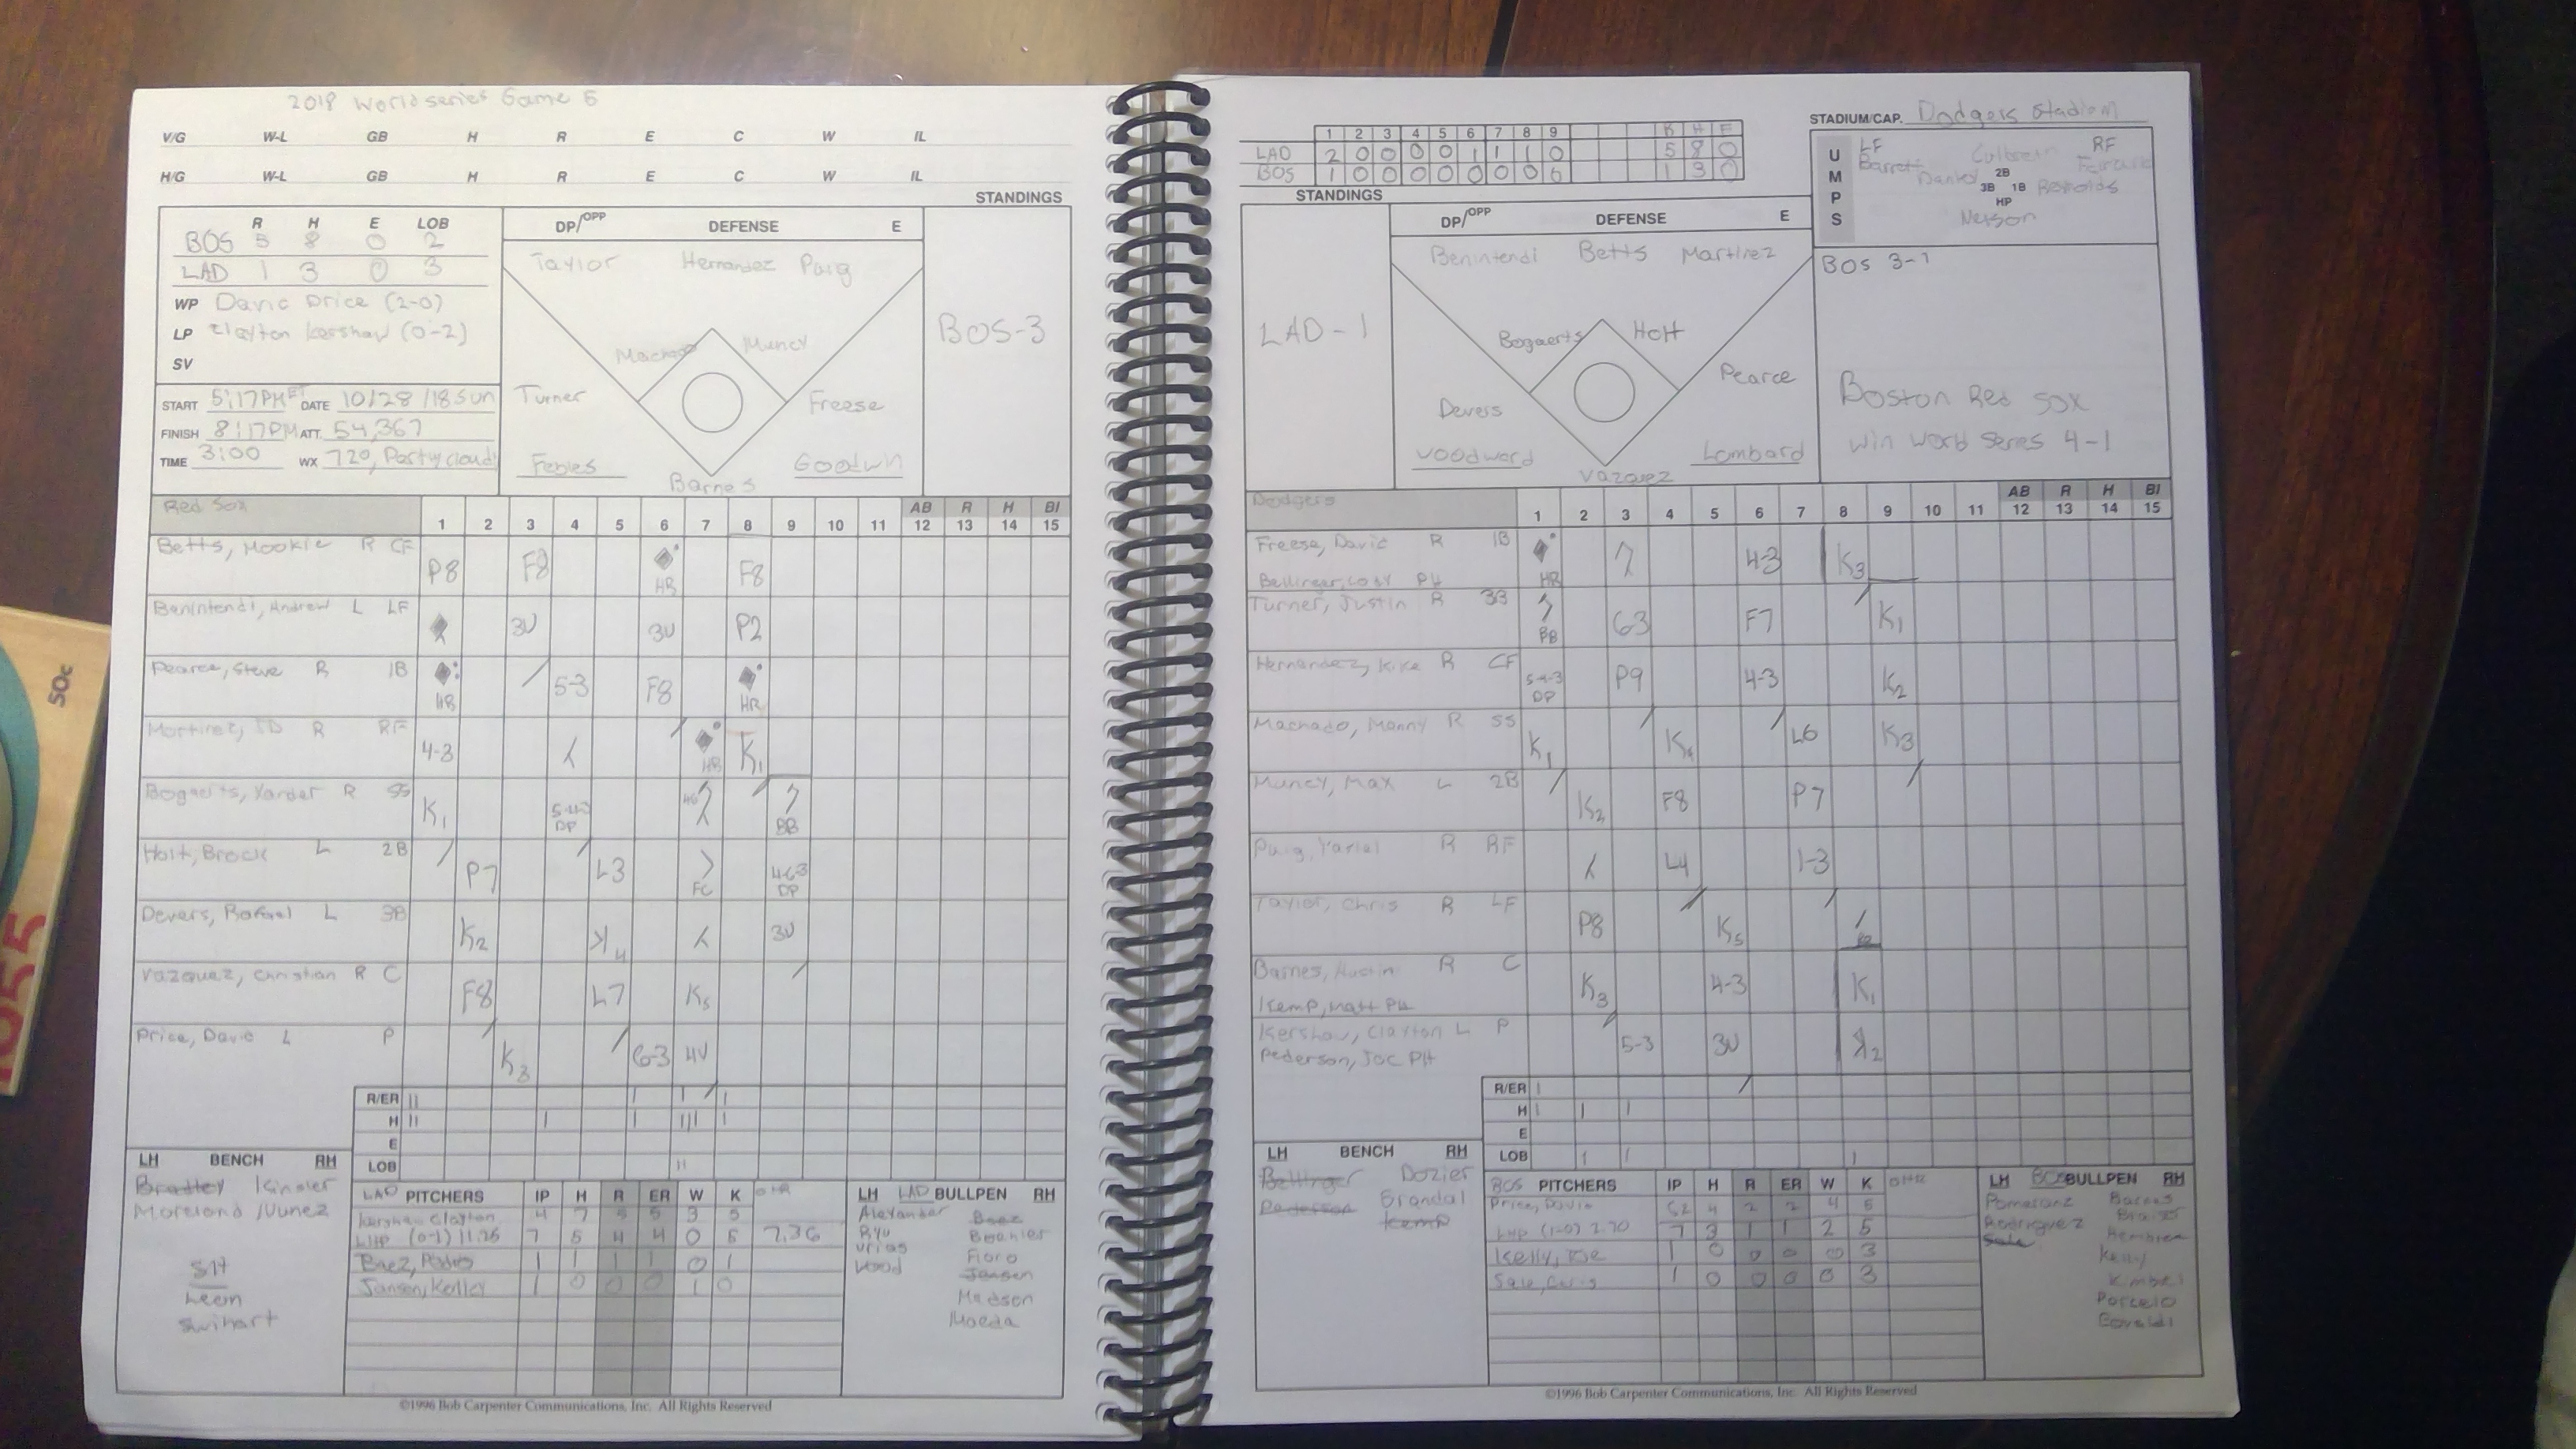 2018 World series Game 5
V/G W-L GB H R E C W IL
H/G W-L GB H R E C W IL
STANDINGS
R H E LOB
BOS 5 8 0 2
LAD 1 3 0 3
WP David Price (2-0)
LP Clayton Kershaw (0-2)
SV
START 5:17PM ET DATE 10/28/18 Sun
FINISH 8:17PM ATT. 54,367
TIME 3:00 WX 72°, Partly cloudy
DP/OPP DEFENSE E
Taylor Hernandez Puig
Machado Muncy
Turner Freese
Febles Goodwin
Barnes
BOS-3
Red Sox 1 2 3 4 5 6 7 8 9 10 11 12 13 14 15
AB R H BI
Betts, Mookie R CF P8 F8 HR F8
Benintendi, Andrew L LF 3U 3U P2
Pearce, Steve R 1B HR 5-3 F8 HR
Martinez, JD R RF 4-3 HR K1
Bogaerts, Xander R SS K1 5-4-3 DP 46 BB
Holt, Brock L 2B P7 L3 FC 4-6-3 DP
Devers, Rafael L 3B K2 K4 3U
Vazquez, Christian R C F8 L7 K5
Price, David L P K3 6-3 4U
R/ER
H
E
LOB
LH BENCH RH
Bradley Kinsler
Moreland Nunez
SH
Leon
Swihart
LAD PITCHERS IP H R ER W K
Kershaw Clayton 4 7 5 5 3 5
LHP (0-1) 11.25 7 5 4 4 0 5 7.36
Baez, Pedro 1 1 1 1 0 1
Jansen, Kelley 1 0 0 0 1 0
LH LAD BULLPEN RH
Alexander Baez
Ryu
Urias Floro
Wood Jansen
Madson
Maeda
©1996 Bob Carpenter Communications, Inc. All Rights Reserved
1 2 3 4 5 6 7 8 9 R H E
LAD 2 0 0 0 0 1 1 1 0 5 8 0
BOS 1 0 0 0 0 0 0 0 0 1 3 0
STADIUM/CAP. Dodgers Stadium
UMPS
LF RF
Barrett Culbreth
Danley 2B
3B 1B Reynolds
HP
Nelson
STANDINGS
LAD-1
DP/OPP DEFENSE E
Benintendi Betts Martinez
Bogaerts Holt
Devers Pearce
Woodward Lombard
Vazquez
BOS 3-1
Boston Red Sox
win World Series 4-1
Dodgers 1 2 3 4 5 6 7 8 9 10 11 12 13 14 15
AB R H BI
Freese, David R 1B HR 7 4-3 K3
Bellinger, Cody PH
Turner, Justin R 3B BB 63 F7 K1
Hernandez, Kike R CF 5-4-3 DP P9 4-3 K2
Machado, Manny R SS K1 K4 L6 K3
Muncy, Max L 2B K2 F8 P7
Puig, Yasiel R RF L4 1-3
Taylor, Chris R LF P8 K5
Barnes, Austin R C K3 4-3 K1
Kemp, Matt PH
Kershaw, Clayton L P 5-3 3U K2
Pederson, Joc PH
R/ER
H
E
LOB
LH BENCH RH
Bellinger Dozier
Pederson Grandal
Kemp
BOS PITCHERS IP H R ER W K
Price, David 4 2 2 4 5
LHP (1-0) 2.70 7 3 1 1 2 5
Kelly, Joe 1 0 0 0 0 3
Sale, Chris 1 0 0 0 0 3
LH BOS BULLPEN RH
Pomeranz Barnes
Rodriguez Brasier
Sale Hembree
Kelly
Kimbrel
Porcello
Eovaldi
©1996 Bob Carpenter Communications, Inc. All Rights Reserved
50c